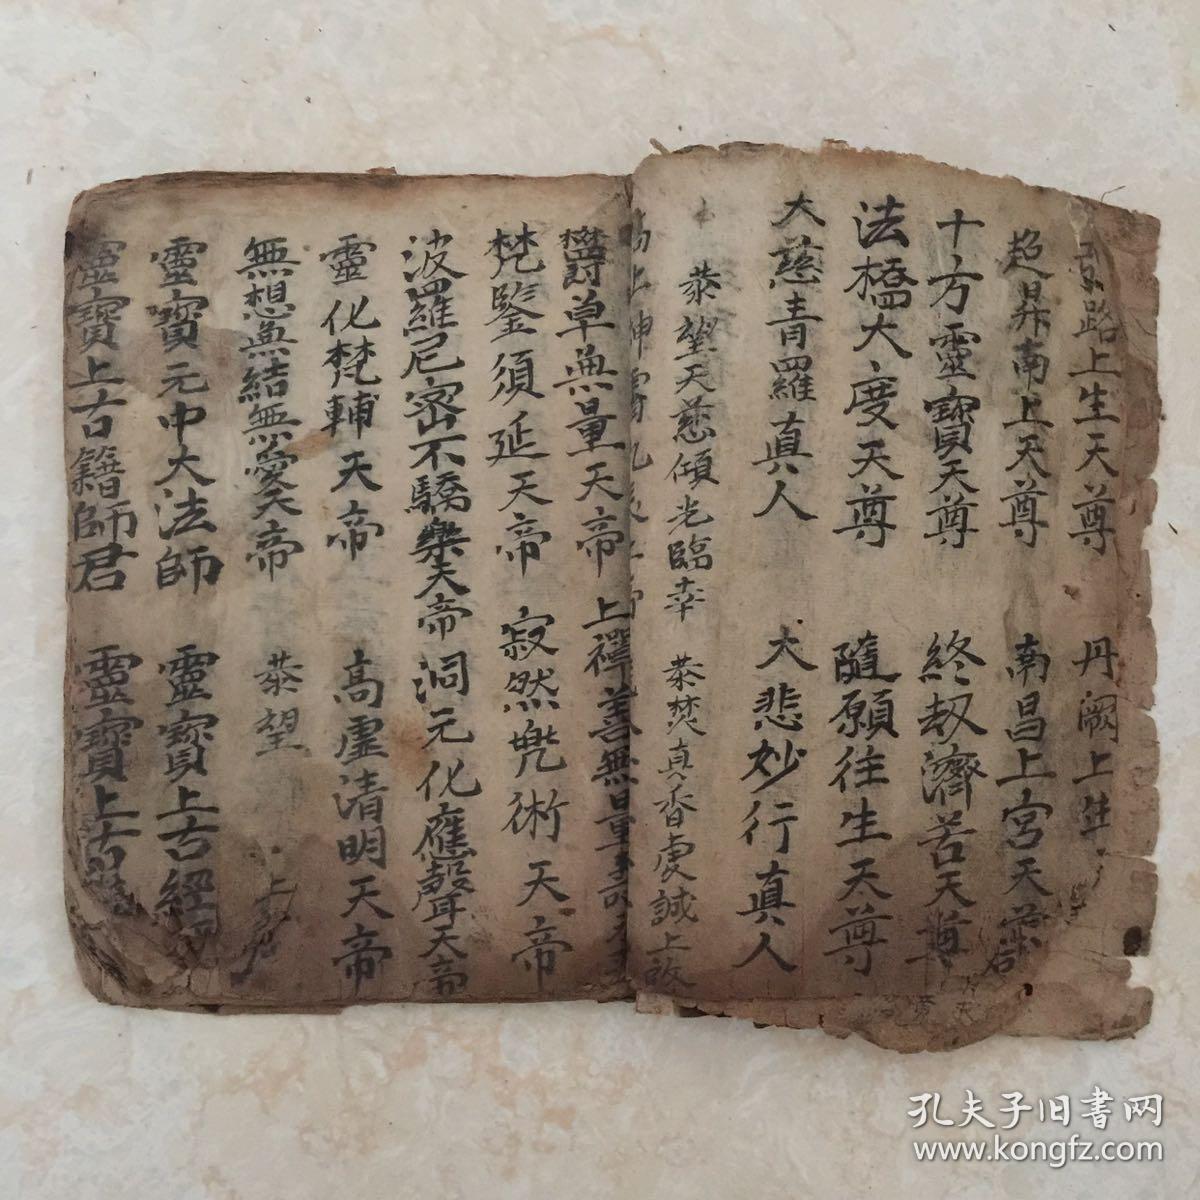 路上生天尊 丹闕上生
超昇南上天尊 南昌上宮天
十方靈寶天尊 終劫濟苦天尊
法橋大度天尊 隨願往生天尊
大慈青羅真人 大悲妙行真人
恭望天慈傾光臨幸 恭焚真香虔誠上啟
欝單無量天帝 上禪善無量壽天
梵鑒須延天帝 寂然兠術天帝
波羅尼密不驕樂天帝 洞元化應聲天帝
靈化梵輔天帝 高虛清明天帝
無想無結無愛天帝 恭望 上
靈寶元中大法師 靈寶上古經
靈寶上古籍師君 靈寶上古
孔夫子旧书网
www.kongfz.com